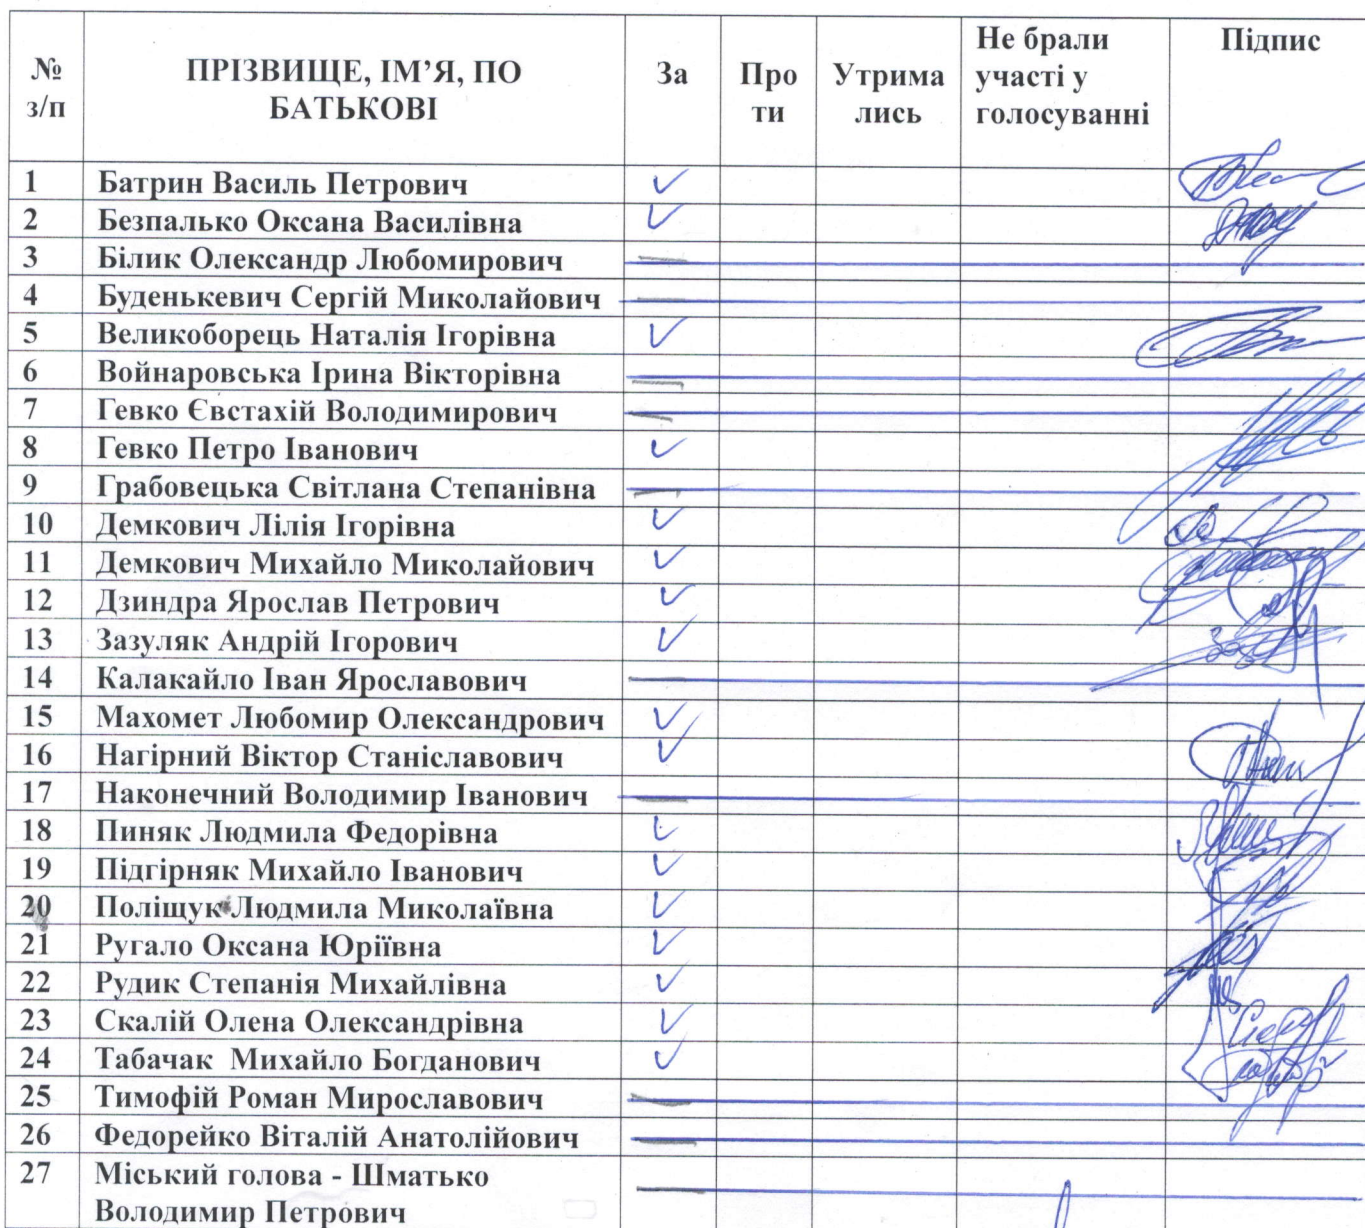 № з/п ПРІЗВИЩЕ, ІМ’Я, ПО БАТЬКОВІ За Про ти Утрима лись Не брали участі у голосуванні Підпис
1 Батрин Василь Петрович ✓
2 Безпалько Оксана Василівна ✓
3 Білик Олександр Любомирович
4 Буденькевич Сергій Миколайович
5 Великоборець Наталія Ігорівна ✓
6 Войнаровська Ірина Вікторівна
7 Гевко Євстахій Володимирович
8 Гевко Петро Іванович ✓
9 Грабовецька Світлана Степанівна
10 Демкович Лілія Ігорівна ✓
11 Демкович Михайло Миколайович ✓
12 Дзиндра Ярослав Петрович ✓
13 Зазуляк Андрій Ігорович ✓
14 Калакайло Іван Ярославович
15 Махомет Любомир Олександрович ✓
16 Нагірний Віктор Станіславович ✓
17 Наконечний Володимир Іванович
18 Пиняк Людмила Федорівна ✓
19 Підгірняк Михайло Іванович ✓
20 Поліщук Людмила Миколаївна ✓
21 Ругало Оксана Юріївна ✓
22 Рудик Степанія Михайлівна ✓
23 Скалій Олена Олександрівна ✓
24 Табачак Михайло Богданович ✓
25 Тимофій Роман Мирославович
26 Федорейко Віталій Анатолійович
27 Міський голова - Шматько
Володимир Петрович